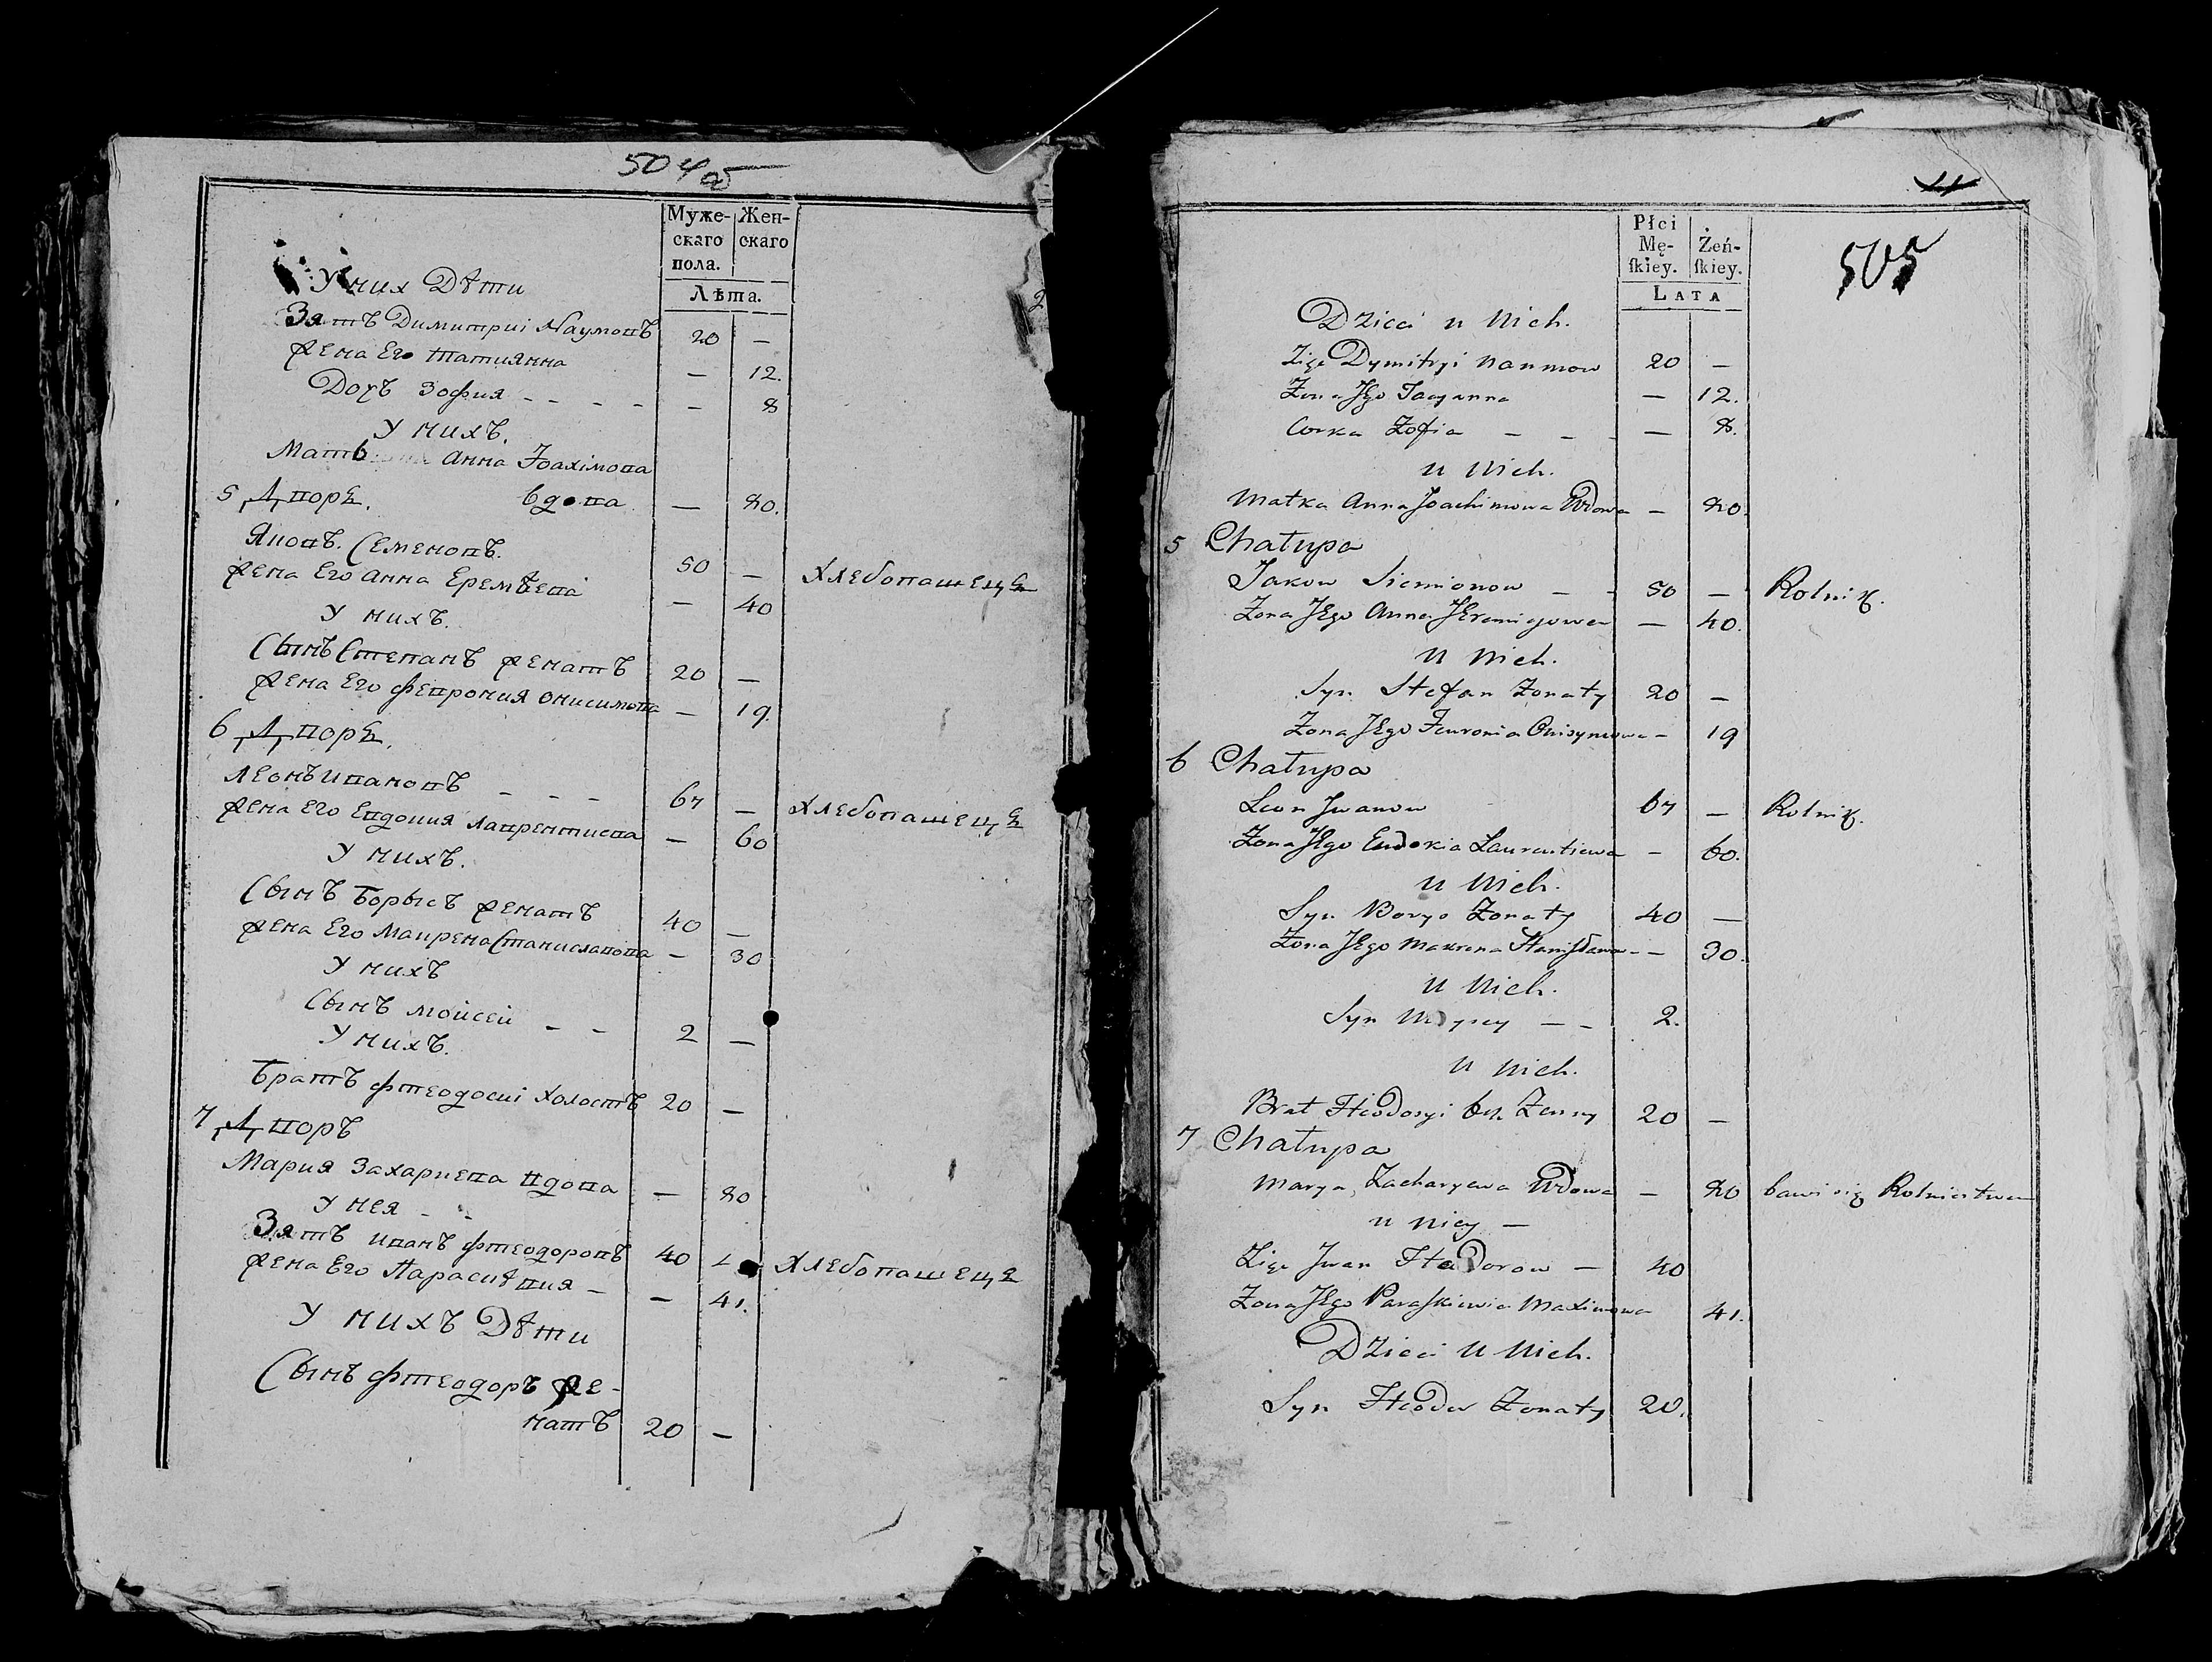 504 об
Муже-
скаго
пола.
Жен-
скаго
Лѣта.
У них Дѣти
Зятъ Димитриі Наумовъ 20 —
Жена Его Татиянна — 12.
Дочъ Зофия - - - - — 8
У нихъ.
Мать Анна Іоахімова
вдова — 80.
5 Дворъ.
Яковъ Семеновъ. 50 — Хлебопашецъ
Жена Его Анна Еремѣева — 40
У нихъ.
Сынъ Степанъ Женатъ 20 —
Жена Его Феврония Онисимова — 19.
6 Дворъ.
Леонъ Ивановъ - - - 67 — Хлебопашецъ
Жена Его Евдокия Лаврентиева — 60
У нихъ.
Сынъ Борысъ Женатъ 40 —
Жена Его Маирена Станиславова — 30
У нихъ
Сынъ Моисей - - 2 —
У нихъ.
Братъ Фтеодосиі Холостъ 20 —
7 Дворъ
Мария Захариева Вдова — 80
У нея - -
Зятъ Иванъ Фтеодоровъ 40 Хлебопашецъ
Жена Его Параскѣвия - — 41.
У нихъ Дѣти
Сынъ Фтеодоръ Же-
натъ 20 —
11
Płci
Mę-
skiey.
Żeń-
skiey.
505
LATA
Dzieci u Nich.
Zięc Dymitryi Naumow 20 —
Zona Jego Tacyanna — 12.
Corka Zofia - - - — 8.
u Nich.
Matka Anna Joachimowa Wdowa — 80.
5 Chałupa
Jakow Siemionow - - 50 — Rolnik.
Zona JEgo Anna JEremiejowa — 40.
u Nich.
Syn Stefan Zonaty 20 —
Zona JEgo Feuronia Onisymowa — 19
6 Chałupa
Leon Jwanow 67 — Rolnik.
Zona JEgo Eudokia Laurentiewa — 60.
u Nich.
Syn Borys Zonaty 40 —
Zona JEgo Makrena Stanisława — 30.
u Nich.
Syn Moysey — - 2.
u Nich.
Brat Fteodosyi bez Zenny 20 —
7 Chałupa
Marya Zacharyewa Wdowa — 80 bawi się Rolnictwem
u Niey —
Zięc Jwan Fteodorow — 40
Zona JEgo Paraskiewia Maximowa 41.
Dzieci u Nich.
Syn Fteodor Zonaty 20.